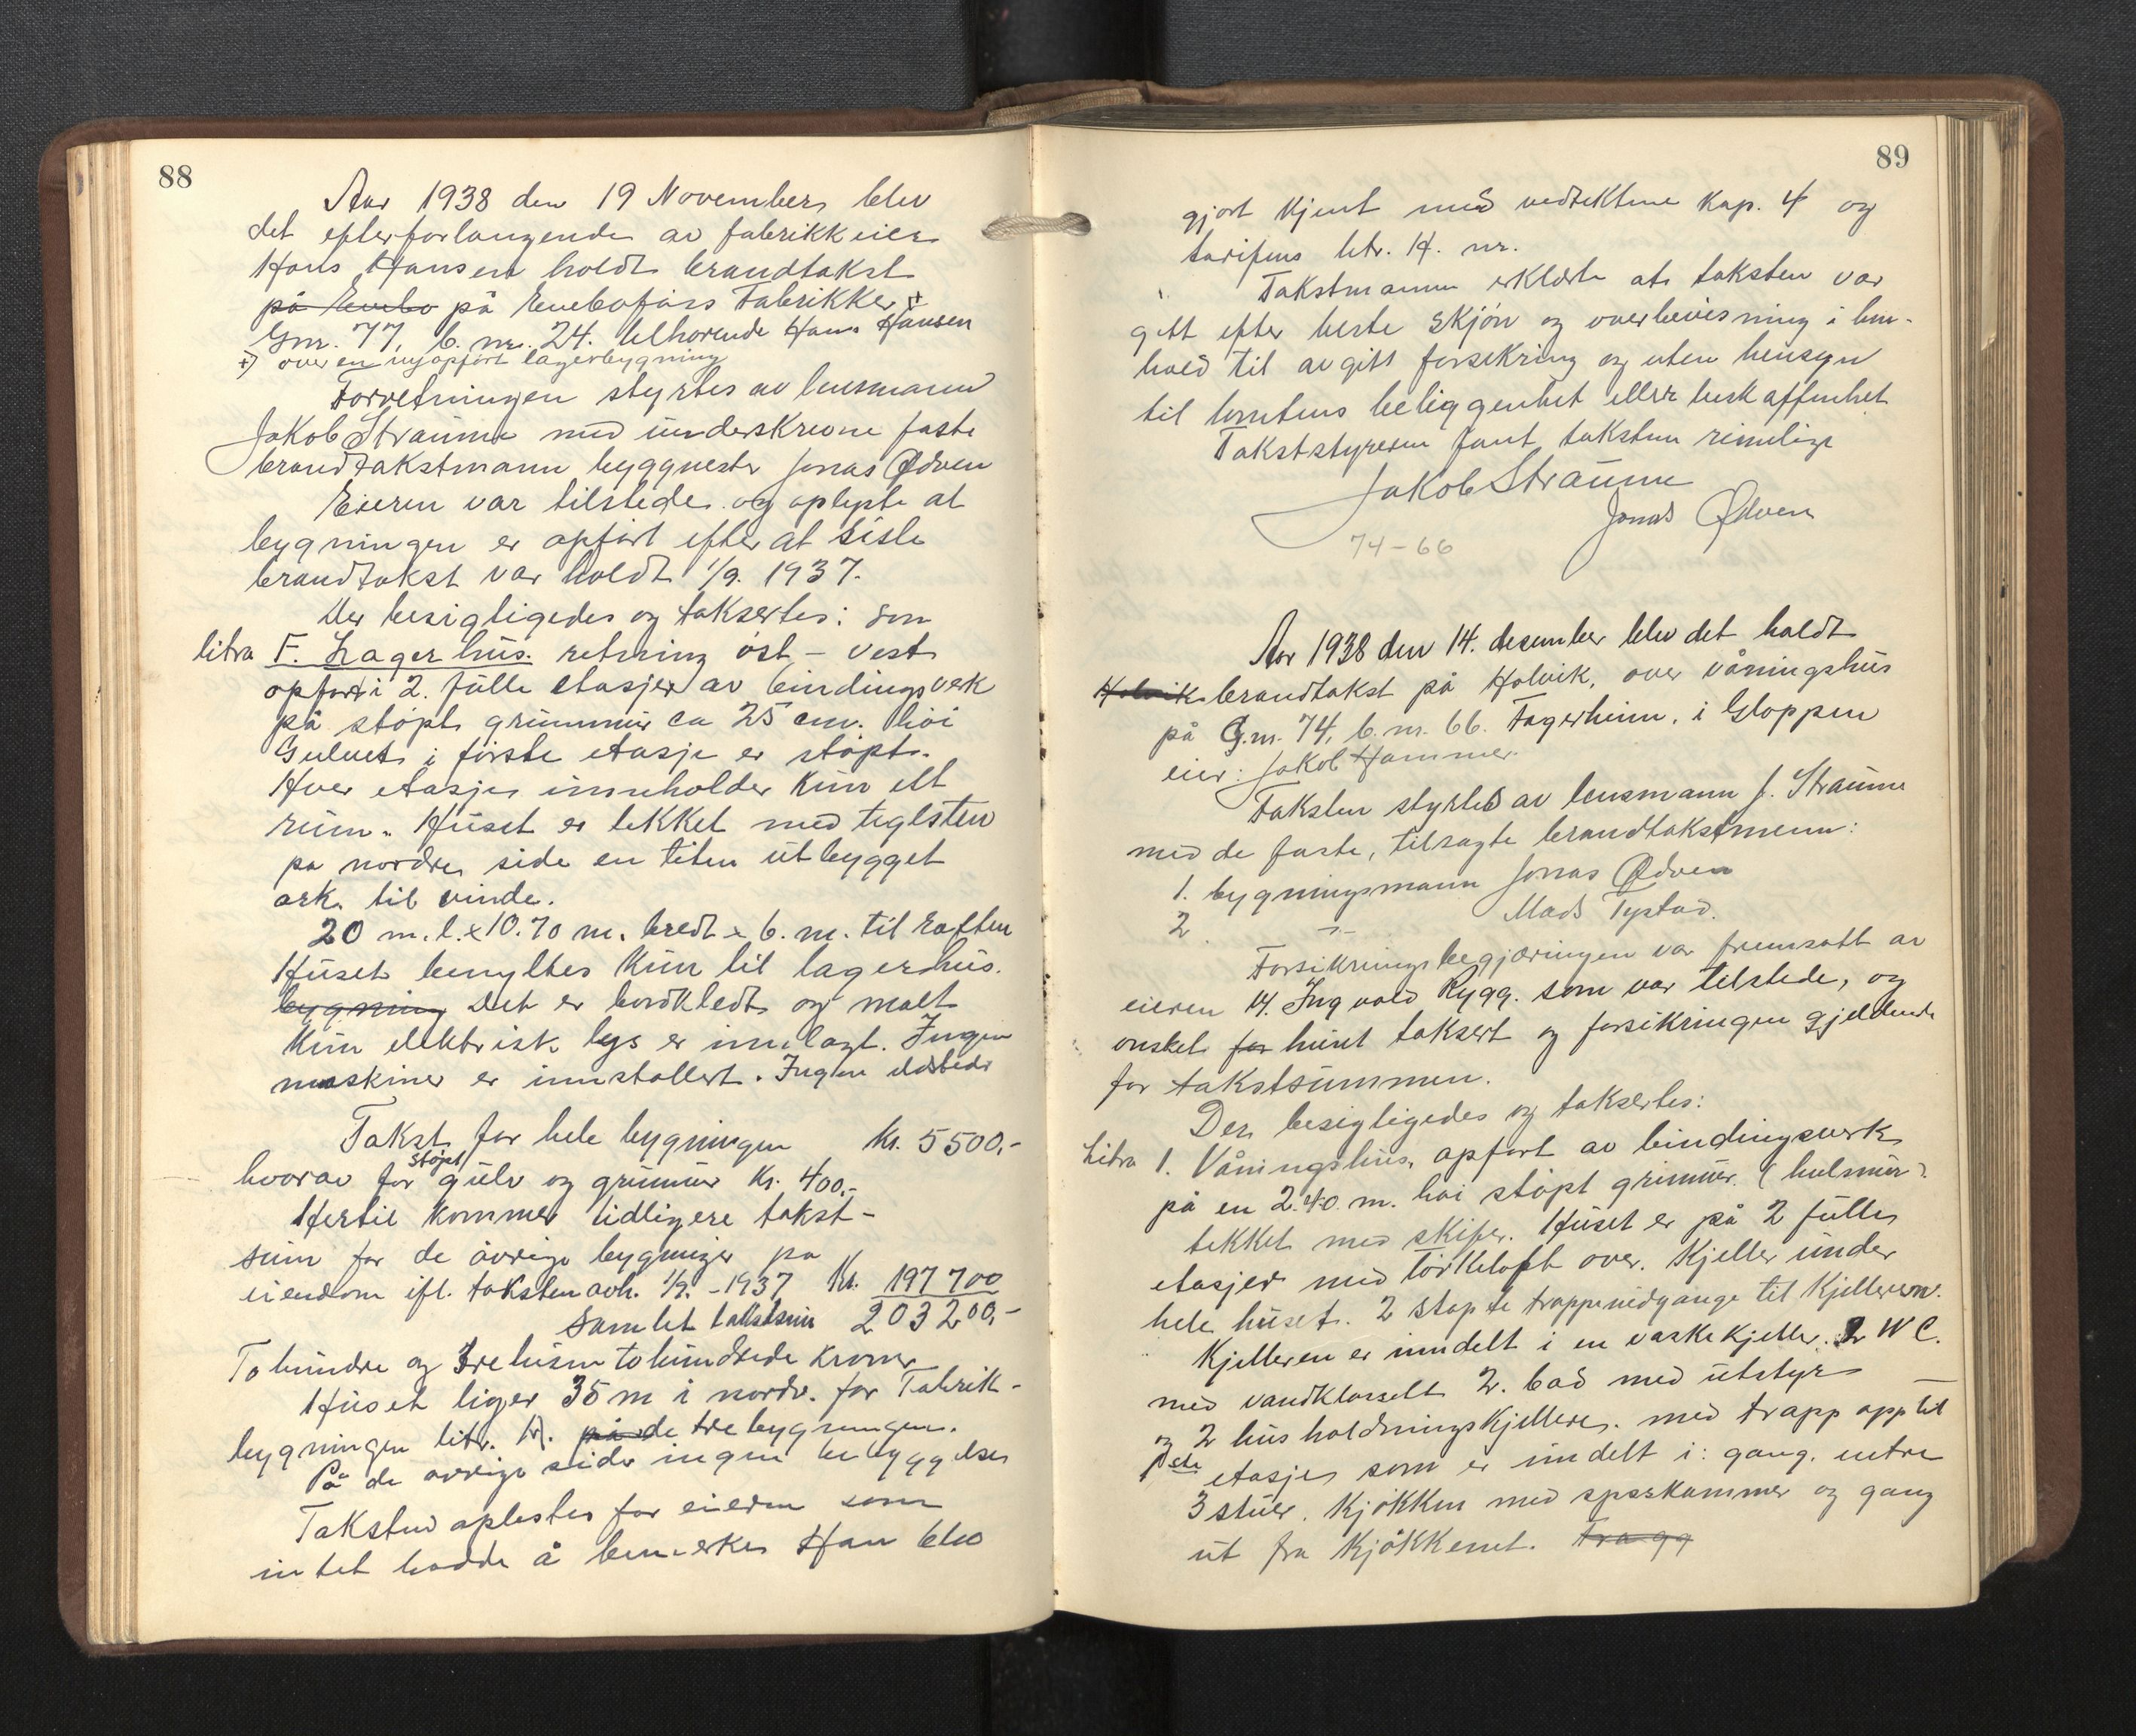 88
Aar 1938 den 19 Novembers blev
det efter forlangende av fabrikkeier
Hans Hansen holdt brandtakst
på Enebo på Enebofoss Fabrikker +
Gnr. 77, b. nr. 24. tilhørende Hans Hansen
+) over en nyopført lagerbygning
Forretningen styrtes av lensmann
Jakob Straume med underskrevne faste
brandtakstmann byggmester Jonas Ødven
Eieren var tilstede og oplyste at
bygningen er opført efter at siste
brandtakst var holdt 1/9. 1937.
Der besigtigedes og taksertes: som
litra F. Lagerhus. retning øst - vest
opført i 2. fulle etasjer av bindingsverk
på støpt grunnmur ca 25 cm. høi
Gulvet i første etasje er støpt.
Hver etasje inneholder kun ett
rum. Huset er tekket med teglsten
på nordre side en liten utbygget
ark. til vinde.
20 m. l. x 10.70 m. bredt x 6. m. til raften
Huset benyttes kun til lagerhus.
bygning Det er bordkledt og malt
Kun elektrisk lys er innlagt. Ingen
maskiner er innstallert. Ingen ildsteder
Takst for hele bygningen Kr. 5500,-
hvorav for støpt gulv og grunmur Kr. 400,-
Hertil kommer tidligere takst-
sum for de øvrige bygninger på
eiendom ifl. taksten avh. 1/9. - 1937 Kr. 197 700
Samlet takstsum 203200,-
To hundre og tretusen tohundrede kroner
Huset liger 35 m i nordv. for Fabrik-
bygningen litr. A. på de tre bygningen.
På de øvrige sider ingen bebyggelse
Taksten oplestes for eieren som
intet hadde å bemerke Han blev
89
gjort kjent med vedtektene Kap. 4 og
tarifens litr. H. nr.
Takstmannen erklærte at taksten var
gitt efter beste skjøn og overbevisning i hen-
hold til avgitt forsikring og uten hensyn
til tomtens beliggenhet eller beskaffenhet
Takststyreren fant taksten rimelige
Jakob Straume
Jonas Ødven
74-66
Aar 1938 den 14. desember blev det holdt
Holvik brandtakst på Holvik, over våningshus
på G.nr. 74, b. nr. 66. Fagerheim, i Gloppen
eier: Jakob Hammer.
Taksten styrtes av lensmann J. Straume
med de faste, tilsagte brandtakstmenn:
1. bygningsmann Jonas Ødven
2 -"- Mads Tystad.
Forsikringsbegjæringen var fremsatt av
eieren Ingvald Rygg. som var tilstede, og
ønsket for huset taksert og forsikringen gjeldende
for takstsummen.
Der besigtigedes og taksertes:
Litra 1. Våningshus, opført av bindingsverk
på en 2.40 m. høi støpt grunmur. (hulmur)
tekket med skifer. Huset er på 2 fulle
etasjer med tørkeloft over. Kjeller under
hele huset. 2 støpte trappenedgange til Kjelleren.
Kjelleren er inndelt i en vaskekjeller. 2 WC.
med vandklosett 2. bad med utstyr
og 2 husholdningskjellere. med trapp opp til
1ste etasje som er inndelt i: gang. entre
3 stuer. Kjøkken med spiskammer og gang
ut fra Kjøkkenet. Tragg